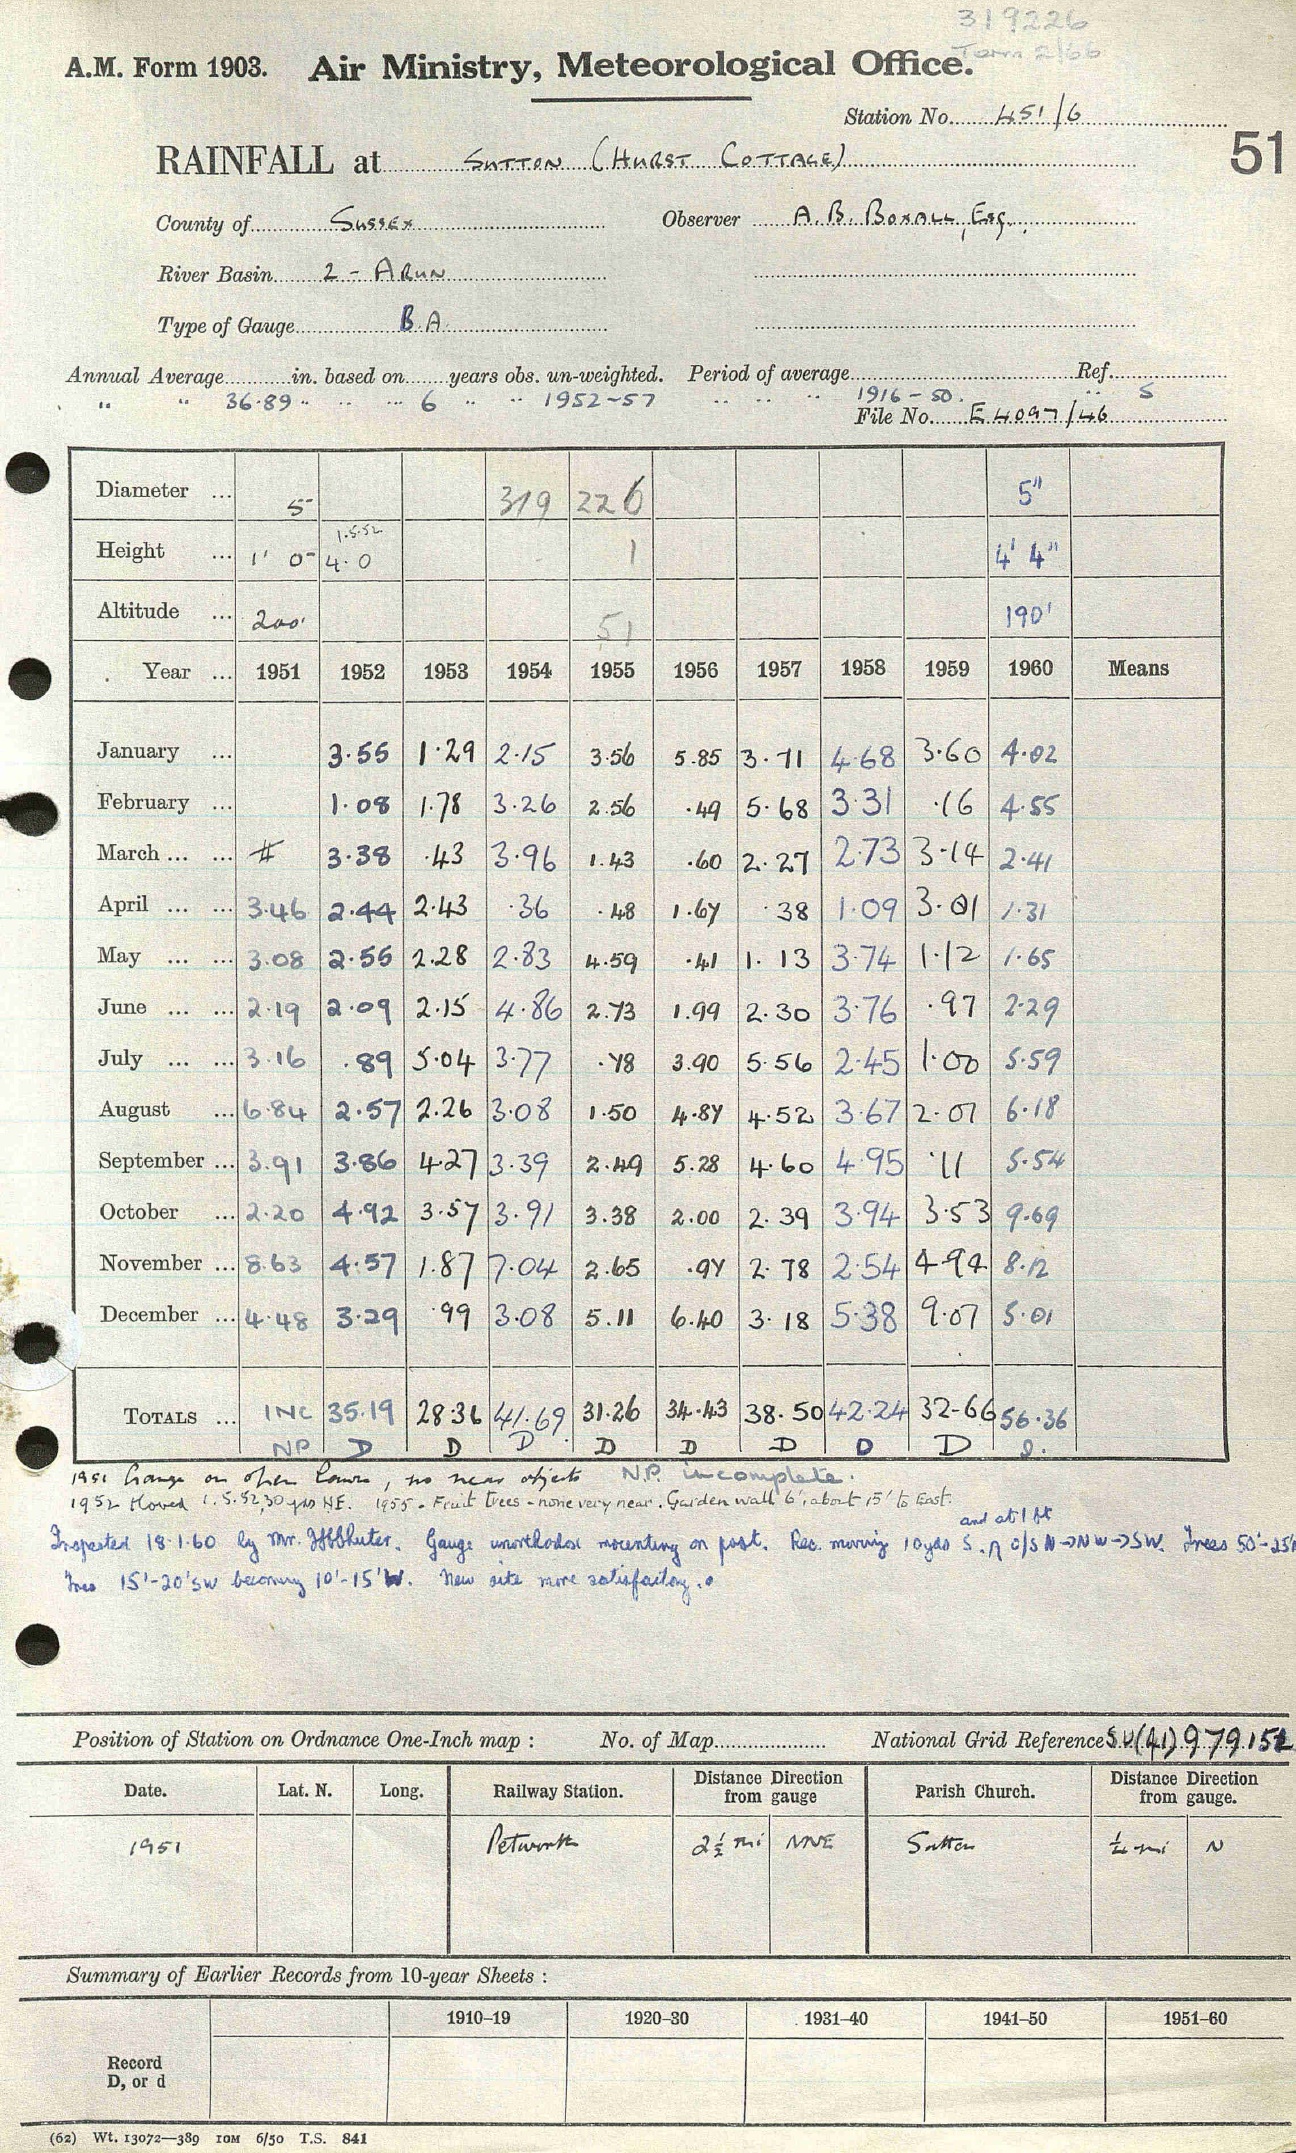 319226
Term 2/66
A.M. Form 1903. Air Ministry, Meteorological Office.
Station No. 451/6
51
RAINFALL at SUTTON (HURST COTTAGE)
County of SUSSEX Observer A. B. BOXALL, Esq.
River Basin 2 - ARUN
Type of Gauge B.A.
Annual Average in. based on years obs. un-weighted. Period of average Ref.
" " 36.89 " " " 6 " " 1952-57 " " " 1916-50. " S
File No. E4097/46
Diameter ... 5" 319 226 5"
1.5.52
Height ... 1' 0" 4.0 1 4' 4"
Altitude ... 200' 51 190'
Year ... 1951 1952 1953 1954 1955 1956 1957 1958 1959 1960 Means
January ... 3.55 1.29 2.15 3.56 5.85 3.71 4.68 3.60 4.02
February ... 1.08 1.78 3.26 2.56 .49 5.68 3.31 .16 4.55
March ... ... # 3.38 .43 3.96 1.43 .60 2.27 2.73 3.14 2.41
April ... ... 3.46 2.44 2.43 .36 .48 1.67 .38 1.09 3.01 1.31
May ... ... 3.08 2.56 2.28 2.83 4.59 .41 1.13 3.74 1.12 1.65
June ... ... 2.19 2.09 2.15 4.86 2.73 1.99 2.30 3.76 .97 2.29
July ... ... 3.16 .89 5.04 3.77 .78 3.90 5.56 2.45 1.00 5.59
August ... 6.84 2.57 2.26 3.08 1.50 4.87 4.52 3.67 2.07 6.18
September ... 3.91 3.86 4.27 3.39 2.49 5.28 4.60 4.95 .11 5.54
October ... 2.20 4.92 3.57 3.91 3.38 2.00 2.39 3.94 3.53 9.69
November ... 8.63 4.57 1.87 7.04 2.65 .97 2.78 2.54 4.94 8.12
December ... 4.48 3.29 .99 3.08 5.11 6.40 3.18 5.38 9.07 5.01
TOTALS ... INC 35.19 28.36 41.69 31.26 34.43 38.50 42.24 32.66 56.36
NP D D D D D D D D D.
1951 Gauge on open lawn, no near objects N.P. incomplete.
1952 Moved 1.5.52, 30 yds NE. 1955 - Fruit trees - none very near. Garden wall 6', about 15' to East.
and at 1 ft
Inspected 18.1.60 by Mr. Gauge unorthodox mounting on post. Rec. moving 10 yds S. of o/s N→NW→SW. Trees 50'-25'
Trees 15'-20' SW becoming 10'-15' W. New site more satisfactory.
Position of Station on Ordnance One-Inch map : No. of Map National Grid Reference SU(41) 979152
Date. Lat. N. Long. Railway Station. Distance from gauge Direction Parish Church. Distance from gauge. Direction
1951 Petworth 2½ mi NNE Sutton ¼ mi N
Summary of Earlier Records from 10-year Sheets :
1910–19 1920–30 1931–40 1941–50 1951–60
Record
D, or d
(62) Wt. 13072—389 10M 6/50 T.S. 841